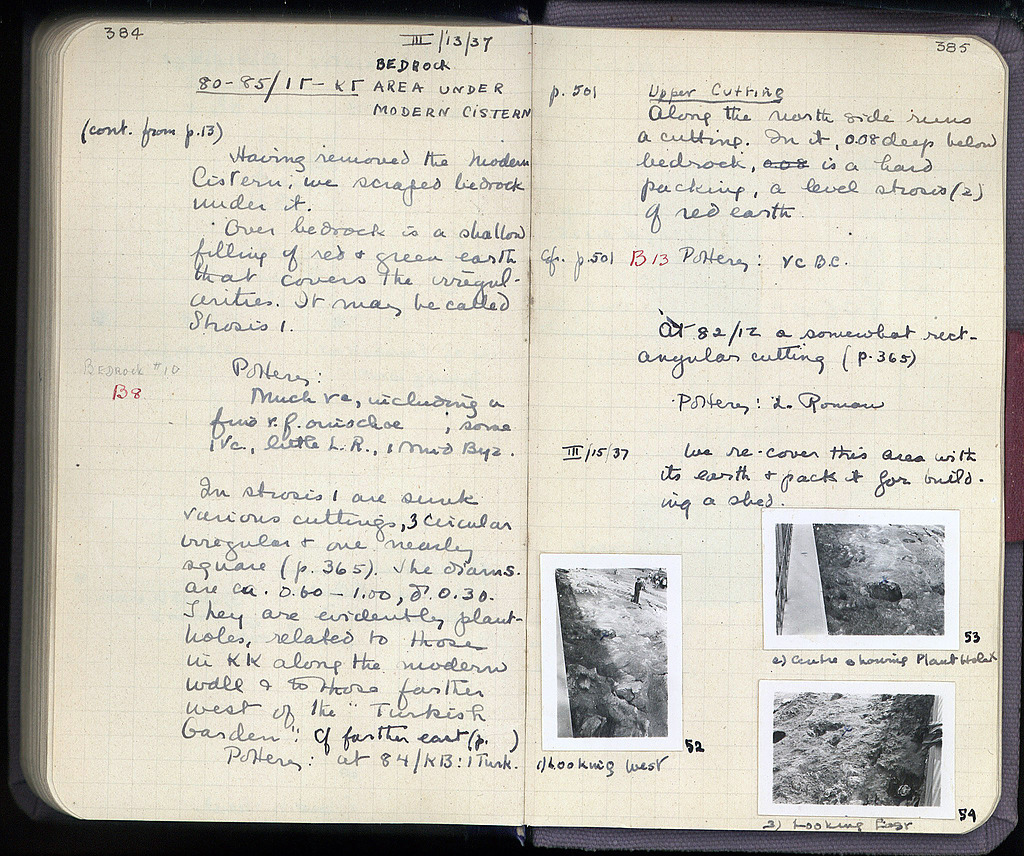 384
III/13/37
BEDROCK
80-85/ΙΓ-ΚΓ AREA UNDER
MODERN CISTERN
(cont. from p.13)
Having removed the modern
Cistern, we scraped bedrock
under it.
Over bedrock is a shallow
filling of red & green earth
that covers the irregul-
arities. It may be called
Strosis 1.
BEDROCK #10
B8
Pottery:
Much Vc, including a
fine r.f. oinochoe ; some
IVc., little L.R., 1 Mid Byz.
In strosis 1 are sunk
various cuttings, 3 circular
irregular & one nearly
square (p. 365). The diams.
are ca. 0.60 - 1.00, d. 0.30.
They are evidently plant-
holes, related to those
in KK along the modern
wall & to those farther
west of the "Turkish
Garden": cf farther east (p. )
Pottery: at 84/KB: 1 Turk.
385
p. 501
Upper Cutting
Along the north side runs
a cutting. In it, 0.08 deep below
bedrock, 0.08 is a hard
packing, a level strosis (2)
of red earth.
Cfr. p.501 B13 Pottery: Vc B.C.
At 82/ΙΖ a somewhat rect-
angular cutting (p. 365)
Pottery: L. Roman
III/15/37
We re-cover this area with
its earth & pack it for build-
ing a shed.
52
1) Looking West
53
2) Centre showing Plant Holes
54
3) Looking East